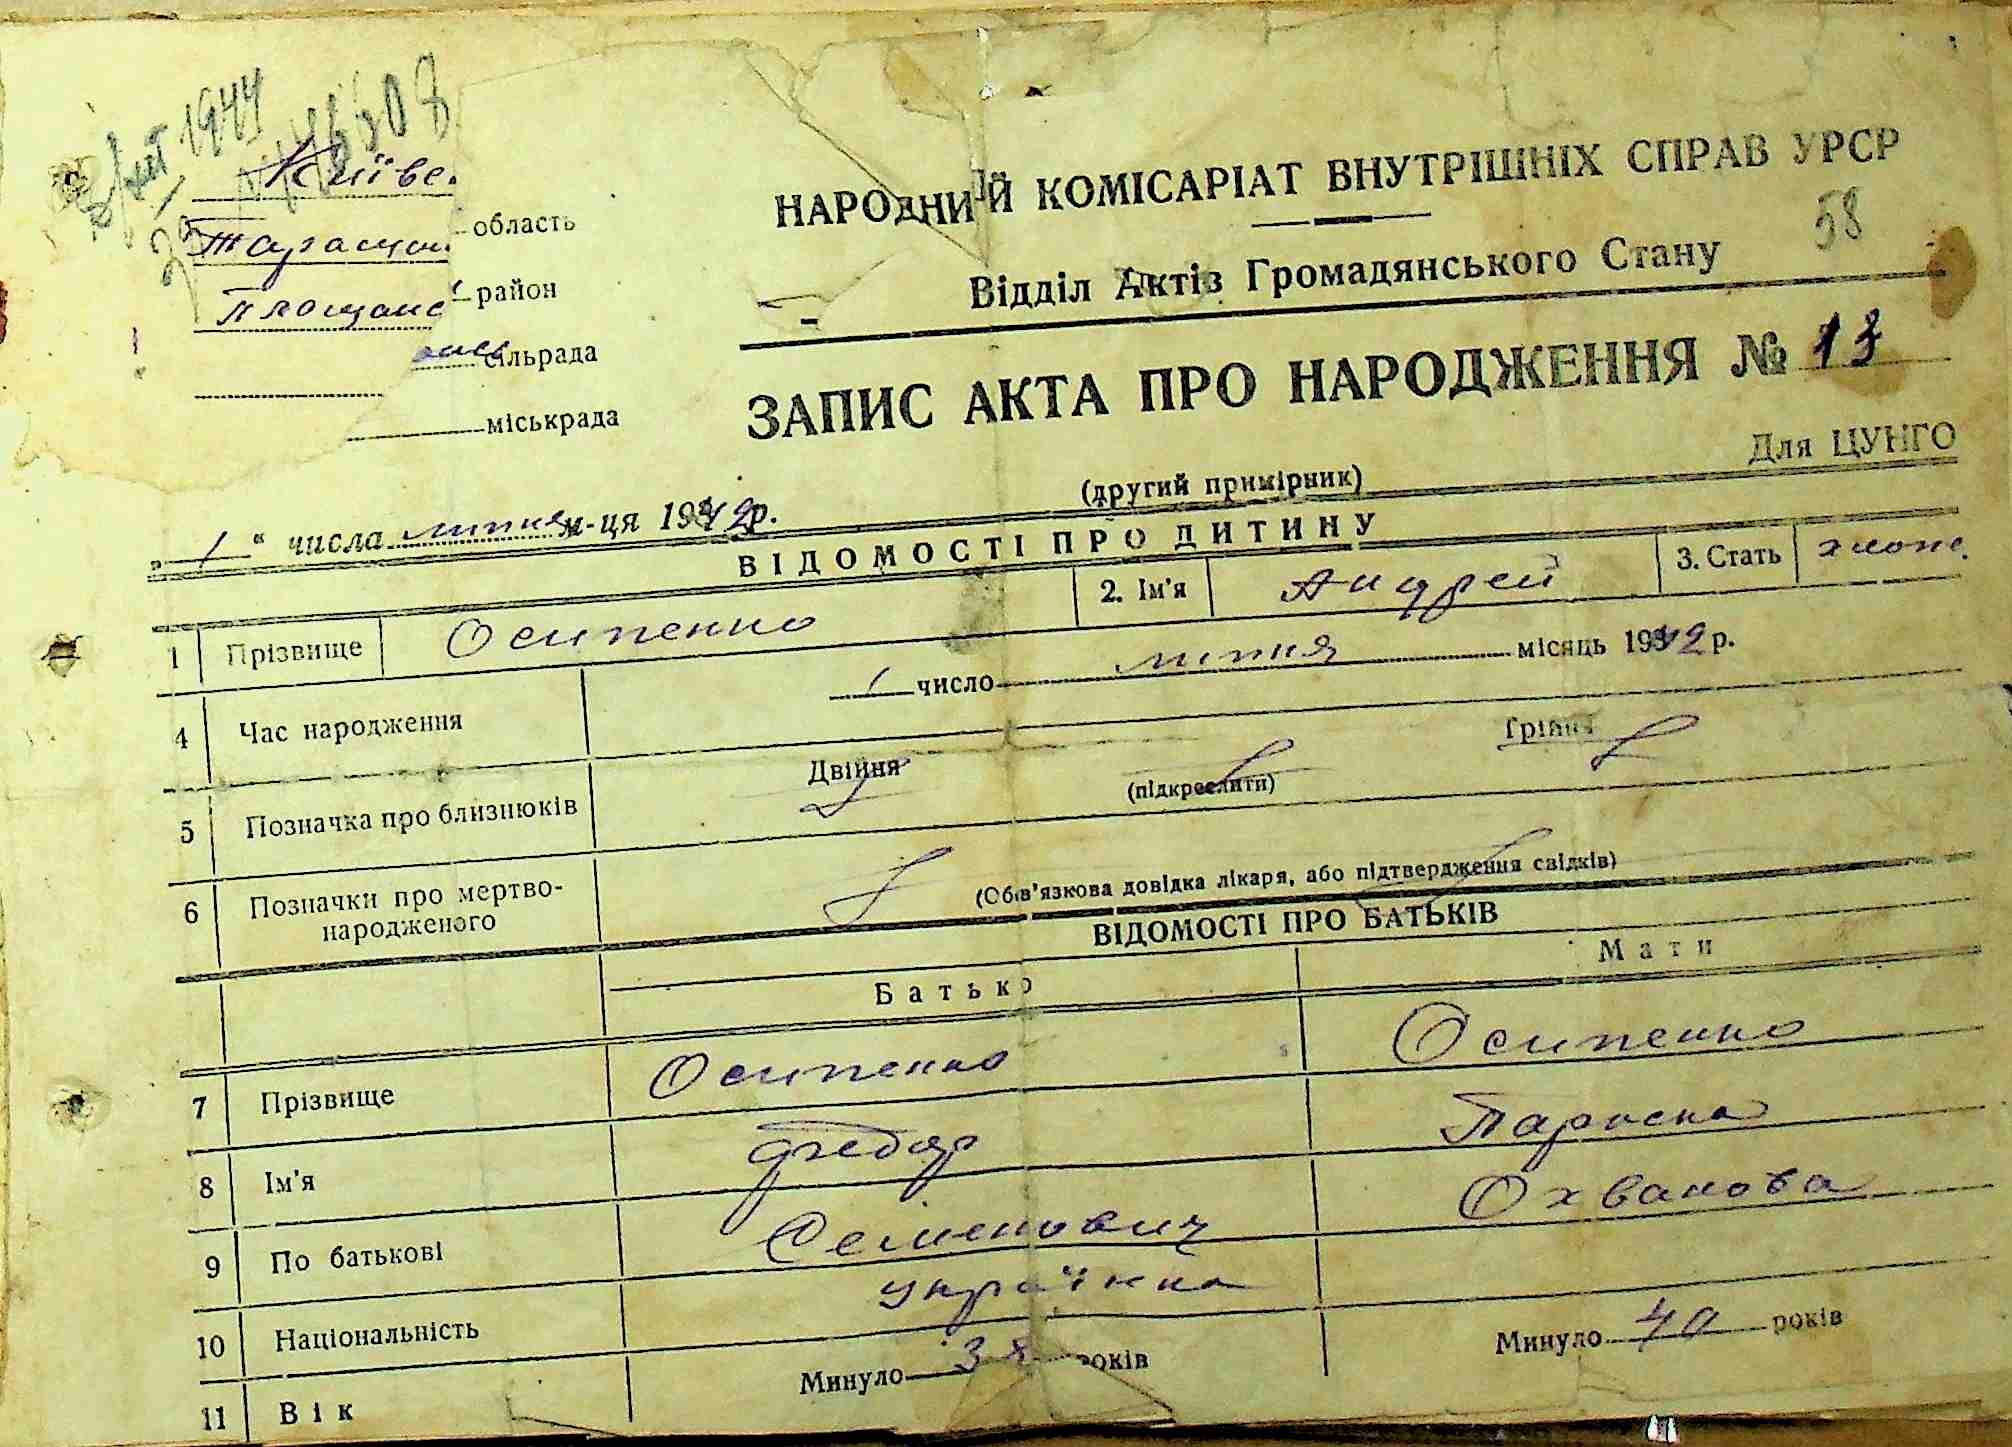 1944
Київс
область
Таращан
район
Площанс
сільрада
міськрада
НАРОДНИЙ КОМІСАРІАТ ВНУТРІШНІХ СПРАВ УРСР
58
Відділ Актів Громадянського Стану
ЗАПИС АКТА ПРО НАРОДЖЕННЯ № 13
Для ЦУНГО
(другий примірник)
„ 1 “ числа липня м-ця 1942 р.
ВІДОМОСТІ ПРО ДИТИНУ
1 Прізвище Осипенко 2. Ім'я Андрей 3. Стать хлопе.
4 Час народження 1 число липня місяць 1942 р.
5 Позначка про близнюків Двійня (підкреслити) Трійня
6 Позначки про мертво-
народженого (Обов'язкова довідка лікаря, або підтвердження свідків)
ВІДОМОСТІ ПРО БАТЬКІВ
Батько Мати
7 Прізвище Осипенко Осипенко
8 Ім'я Федор Параска
9 По батькові Семенович Охванова
10 Національність українка
11 Вік Минуло років Минуло 40 років